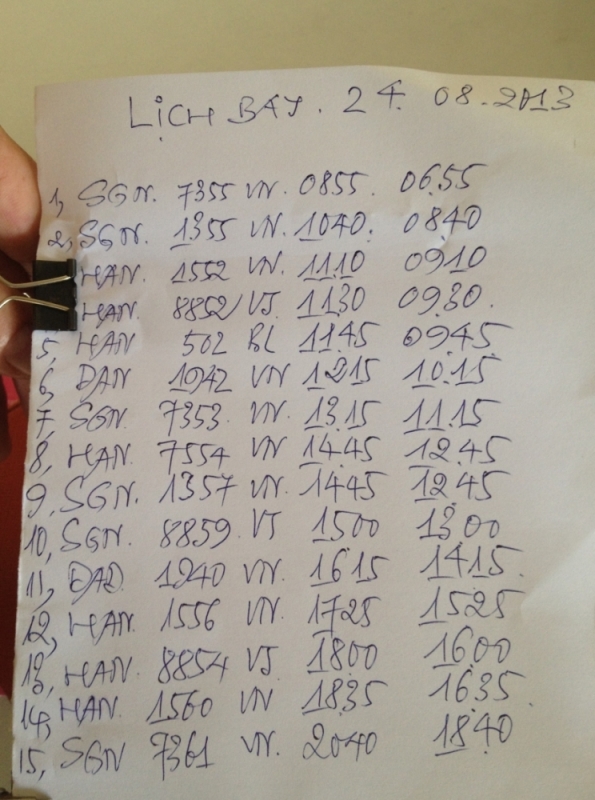 LỊCH BAY. 24. 08.2013
1, SGN. 7355 VN. 0855. 06.55
2, SGN. 1355 VN. 1040. 0840
HAN. 1552 VN. 11.10 0910
HAN. 8852 VJ 1130 09.30.
5, HAN 502 BL 1145 09.45
6, DAN 1942 VN 1215 10.15
7, SGN. 7353. VN. 13.15 11.15
8, HAN. 7554 VN 14.45 12.45
9, SGN. 1357 VN. 1445 12.45
10, SGN. 8859. VJ 1500 13.00
11, DAD 1940 VN. 1615 1415.
12, HAN. 1556 VN. 1725 1525
13, HAN. 8854 VJ 1800 1600
14, HAN. 1560 VN 1835 1635.
15, SGN 7361 VN. 2040 18.40